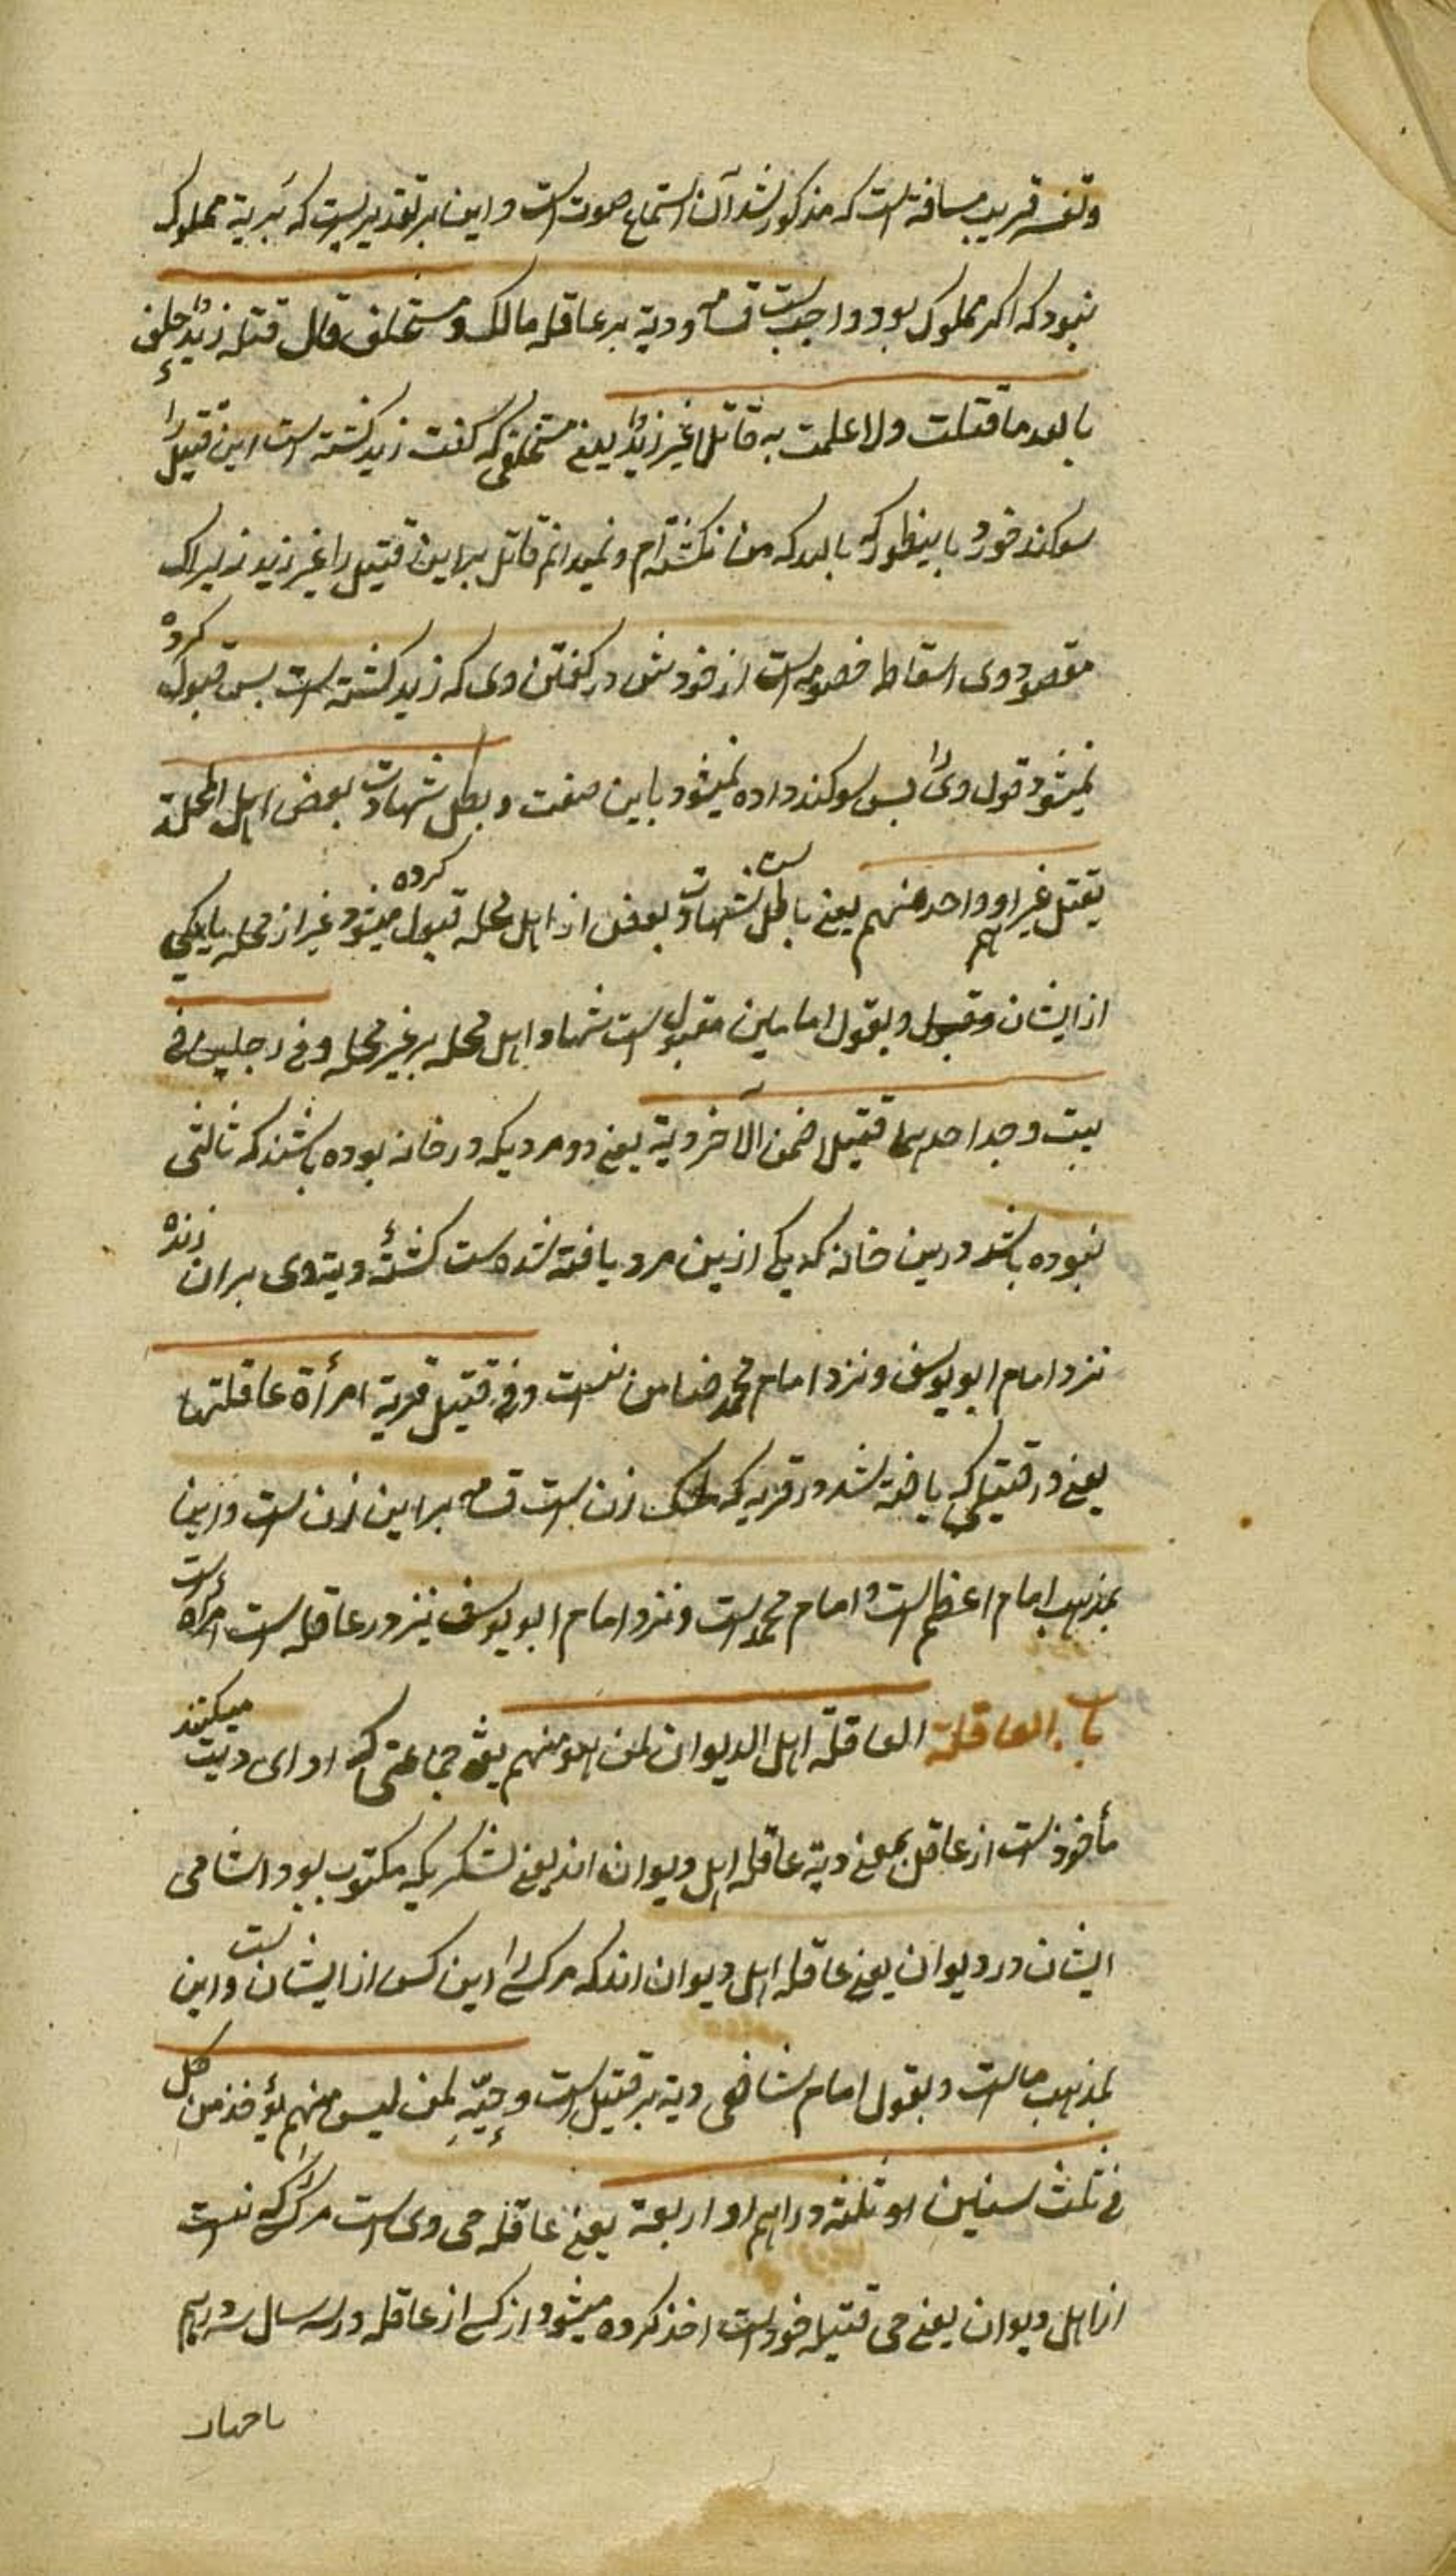 وتفسیر قریب مسافة است که مذکور شد آن استماع صوت است و این بر تقدیریست که بریه مملوک
نبود که اگر مملوک بود واجب است قسامه ودیة بر عاقله مالک ومستحلف قال قتله زید حلف
بالله ما قتلت ولا علمت به قاتلا غیر زید یعنی مستحلفی که گفت زید کشته است این قتیل را
سوکند خورد باینطور که بالله که من نکشته ام و نمیدانم قاتل براین قتیل را غیر زید زیراک
مقصود وی اسقاط خصومه است از خودش در کفتن وی که زید کشته است پس قبول کرده
نمیشود قول وی پس سوکند داده نمیشود باین صفت وبطل شهادت بعض اهل المحلة
بقتل غیرهم او واحد منهم یعنی باطل است شهادت بعض از اهل محله قبول کرده میشود غیر از محله یا یکی
از ایشان وبقول امامین مقبول است شهادة اهل محله بر غیر محله وفی رجلین فی
بیت وجد احدهما قتیلا ضمن الآخر دیة یعنی دو مردیکه در خانه بوده باشند که ثالثی
نبوده باشد درین خانه که یکی ازین مرد یافته شده است کشته دیة وی بران زنده
نزد امام ابو یوسف ونزد امام محمد ضامن نیست وفی قتیل قریة امرأة عاقلتها
یعنی در قتیلی که یافته شد در قریه که ملک زن است قسامه براین زن است واین
بمذهب امام اعظم است و امام محمد است ونزد امام ابو یوسف نیز در عاقله است امرأة است
باب العاقلة العاقلة اهل الدیوان لمن هو منهم یعنی جماعتی که ادای دیت میکنند
مأخوذست از عاقل بمعنی دیة عاقله اهل دیوان اند یعنی لشکریکه مکتوب بود اسامی
ایشان در دیوان یعنی عاقله اهل دیوان اند که مرکسی را این کس از ایشانست واین
بمذهب ماست وبقول امام شافعی دیة بر قتیل است وحیّه لمن لیس منهم یؤخذ من کل
فی ثلث سنین او ثلثة دراهم او اربعة یعنی عاقله حی وی است مرکسی را که نیست
از اهل دیوان یعنی حی قتیله خود است اخذ کرده میشود از کسی از عاقله در سه سال سه درهم